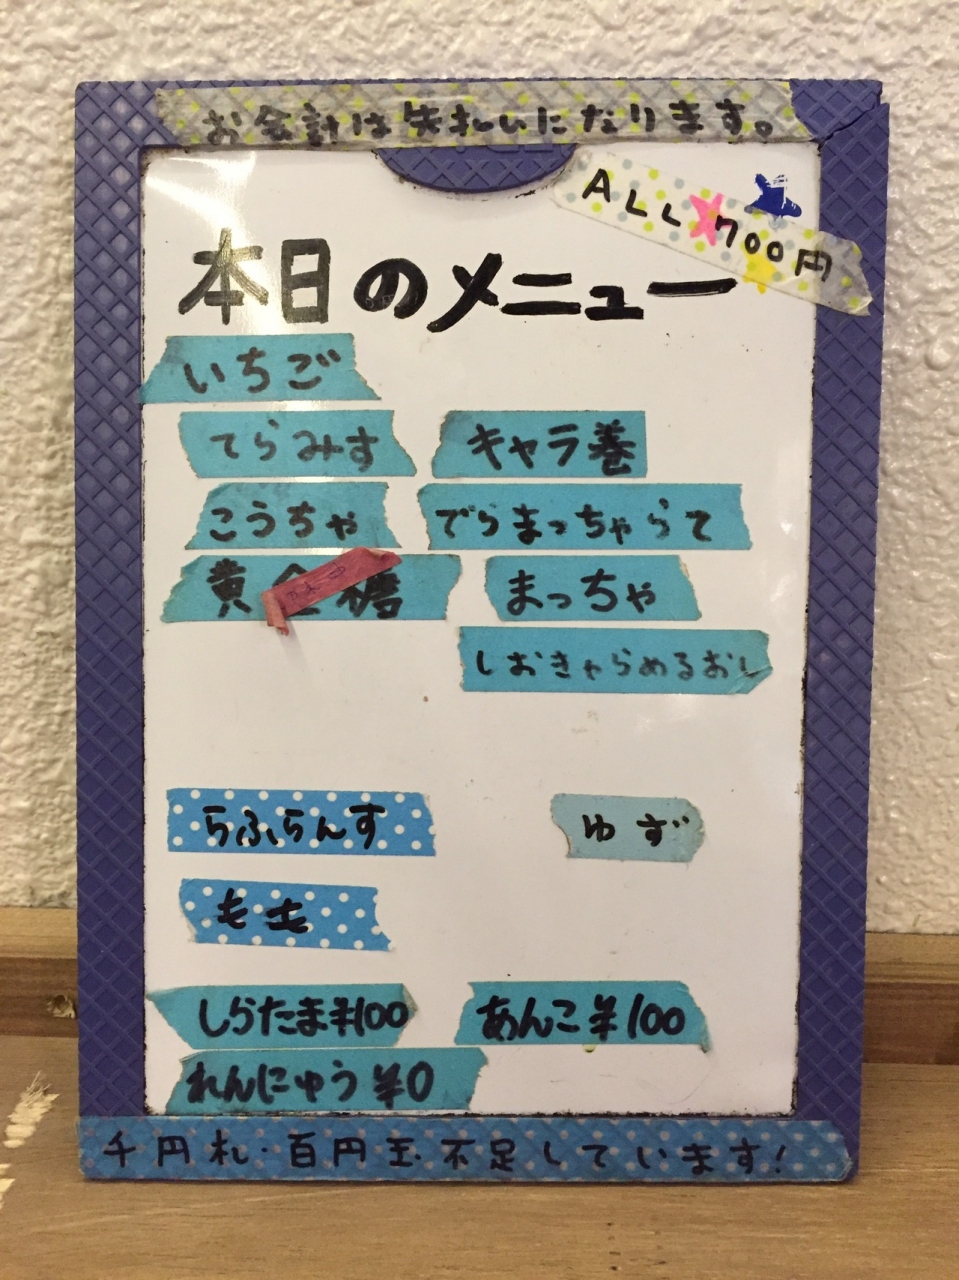 お会計は先払いになります。
ALL 700円
本日のメニュー
いちご
てらみす
キャラ巻
こうちゃ
でらまっちゃらて
黄金糖
まっちゃ
しおきゃらめるおし
らふらんす
ゆず
もも
しらたま¥100
あんこ¥100
れんにゅう¥0
千円札・百円玉不足しています!